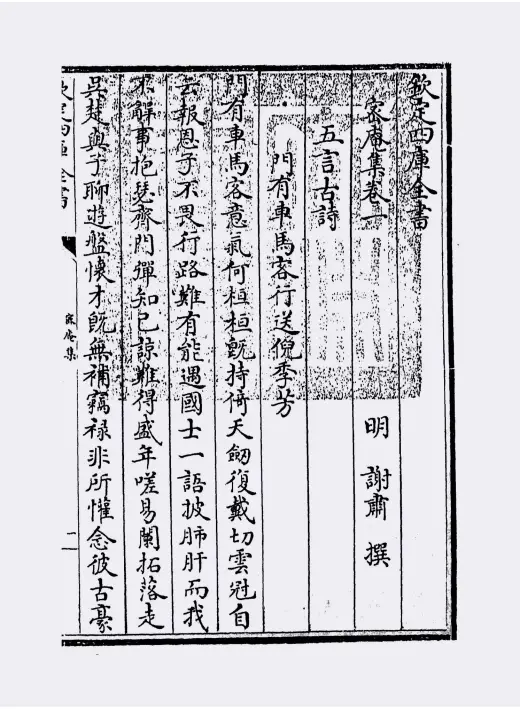 欽定四庫全書
密庵集卷一
明 謝肅 撰
五言古詩
門有車馬客行送倪季芳
門有車馬客意氣何桓桓既持倚天劒復戴切雲冠自
云報恩子不畏行路難有能遇國士一語披肺肝而我
不解事抱瑟齊門彈知已諒難得盛年嗟易闌拓落走
吳楚與子聊遊盤懷才既無補竊禄非所懽念彼古豪
欽定四庫全書
密庵集